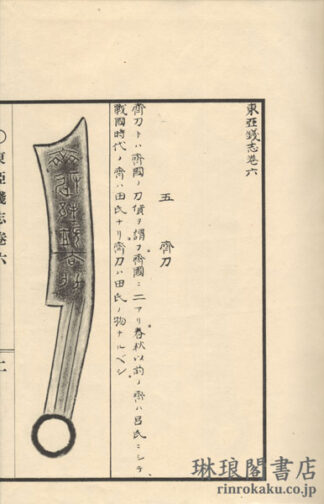 東亞錢志卷六
五 齊刀
齊刀トハ齊國ノ刀貨ヲ謂フ齊國ニ二アリ春秋以前ノ齊ハ呂氏ニシテ
戰國時代ノ齊ハ田氏ナリ齊刀ハ田氏ノ物ナルベシ
〇東亞錢志卷六
琳琅閣書店
rinrokaku.co.jp